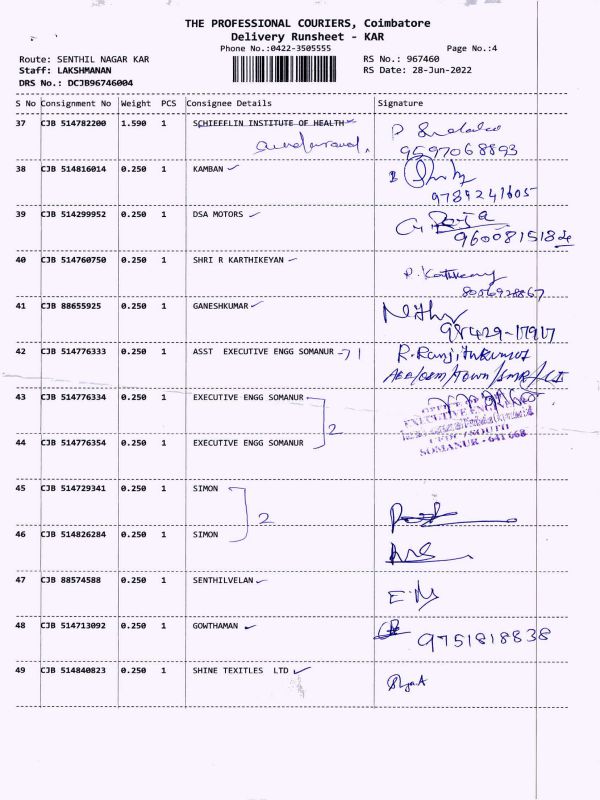 THE PROFESSIONAL COURIERS, Coimbatore
Delivery Runsheet - KAR
Phone No.:0422-3505555 Page No.:4
Route: SENTHIL NAGAR KAR RS No.: 967460
Staff: LAKSHMANAN RS Date: 28-Jun-2022
DRS No.: DCJB96746004
S No Consignment No Weight PCS Consignee Details Signature
37 CJB 514782200 1.590 1 SCHIEFFLIN INSTITUTE OF HEALTH
9597068893
38 CJB 514816014 0.250 1 KAMBAN
9789241605
39 CJB 514299952 0.250 1 DSA MOTORS
9600815182
40 CJB 514760750 0.250 1 SHRI R KARTHIKEYAN
8056928867
41 CJB 88655925 0.250 1 GANESHKUMAR
98429-17917
42 CJB 514776333 0.250 1 ASST EXECUTIVE ENGG SOMANUR 1 R. Ranjithkumar
AEE/O&M/Town/SMR/
43 CJB 514776334 0.250 1 EXECUTIVE ENGG SOMANUR
2
44 CJB 514776354 0.250 1 EXECUTIVE ENGG SOMANUR
SOMANUR - 641 668
45 CJB 514729341 0.250 1 SIMON
2
46 CJB 514826284 0.250 1 SIMON
47 CJB 88574588 0.250 1 SENTHILVELAN
48 CJB 514713092 0.250 1 GOWTHAMAN
9751818838
49 CJB 514840823 0.250 1 SHINE TEXITLES LTD